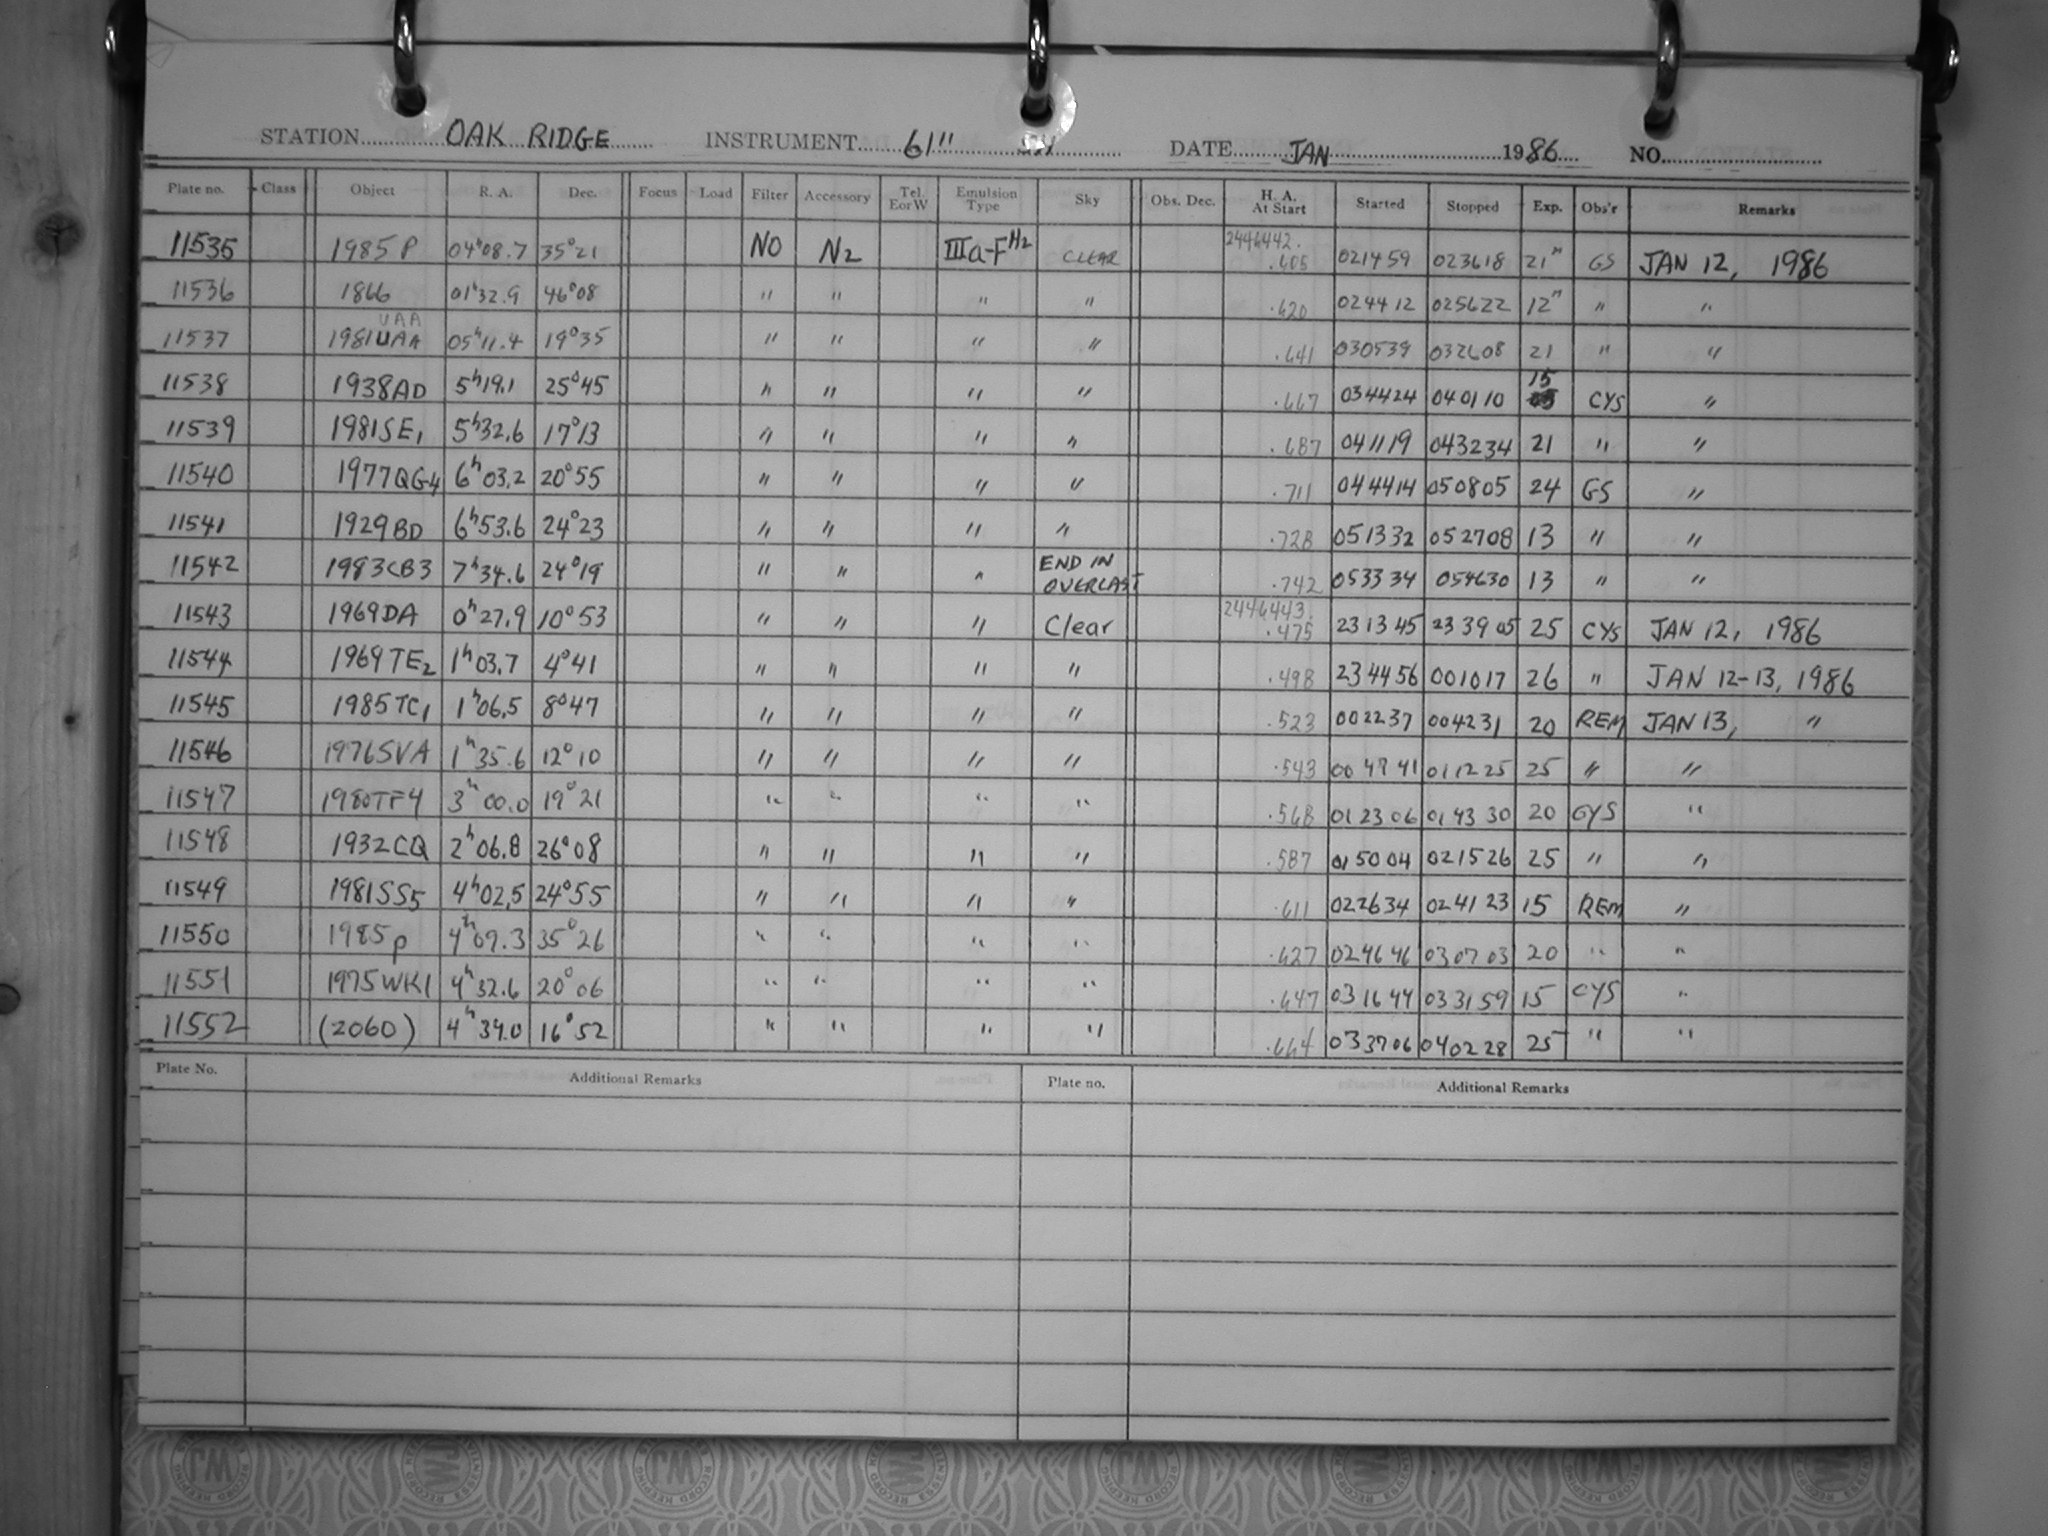 STATION OAK RIDGE INSTRUMENT 61" DATE JAN 1986 NO.
Plate no. Class Object R. A. Dec. Focus Load Filter Accessory Tel. E or W Emulsion Type Sky Obs. Dec. H. A. At Start Started Stopped Exp. Obs'r Remarks
11535 1985 P 04h08.7 35°21 NO N2 IIIa-F H2 CLEAR 2446442. .605 021459 023618 21m GS JAN 12, 1986
11536 1866 01h32.9 46°08 " " " " .620 024412 025622 12m " "
UAA
11537 1981UAA 05h11.4 19°35 " " " " .641 030539 032608 21 " "
11538 1938AD 5h19.1 25°45 " " " " .667 034424 040110 15 CYS "
11539 1981SE1 5h32.6 17°13 " " " " .687 041119 043234 21 " "
11540 1977QG4 6h03.2 20°55 " " " " .711 044414 050805 24 GS "
11541 1929BD 6h53.6 24°23 " " " " .728 051332 052708 13 " "
11542 1983CB3 7h34.6 24°19 " " " END IN OVERCAST .742 053334 054630 13 " "
11543 1969DA 0h27.9 10°53 " " " Clear 2446443. .475 231345 233905 25 CYS JAN 12, 1986
11544 1969TE2 1h03.7 4°41 " " " " .498 234456 001017 26 " JAN 12-13, 1986
11545 1985TC1 1h06.5 8°47 " " " " .523 002237 004231 20 REM JAN 13, "
11546 1976SVA 1h35.6 12°10 " " " " .543 004741 011225 25 " "
11547 1980TF4 3h00.0 19°21 " " " " .568 012306 014330 20 CYS "
11548 1932CQ 2h06.8 26°08 " " " " .587 015004 021526 25 " "
11549 1981SS5 4h02.5 24°55 " " " " .611 022634 024123 15 REM "
11550 1985p 4h09.3 35°26 " " " " .627 024646 030703 20 " "
11551 1975WK1 4h32.6 20°06 " " " " .647 031644 033159 15 CYS "
11552 (2060) 4h39.0 16°52 " " " " .664 033706 040228 25 " "
Plate No. Additional Remarks Plate no. Additional Remarks